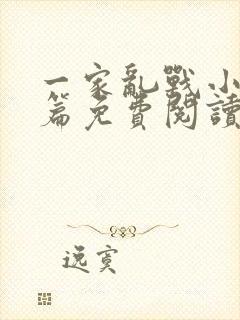 一家亂戰小
篇免費閱讀
逸寞